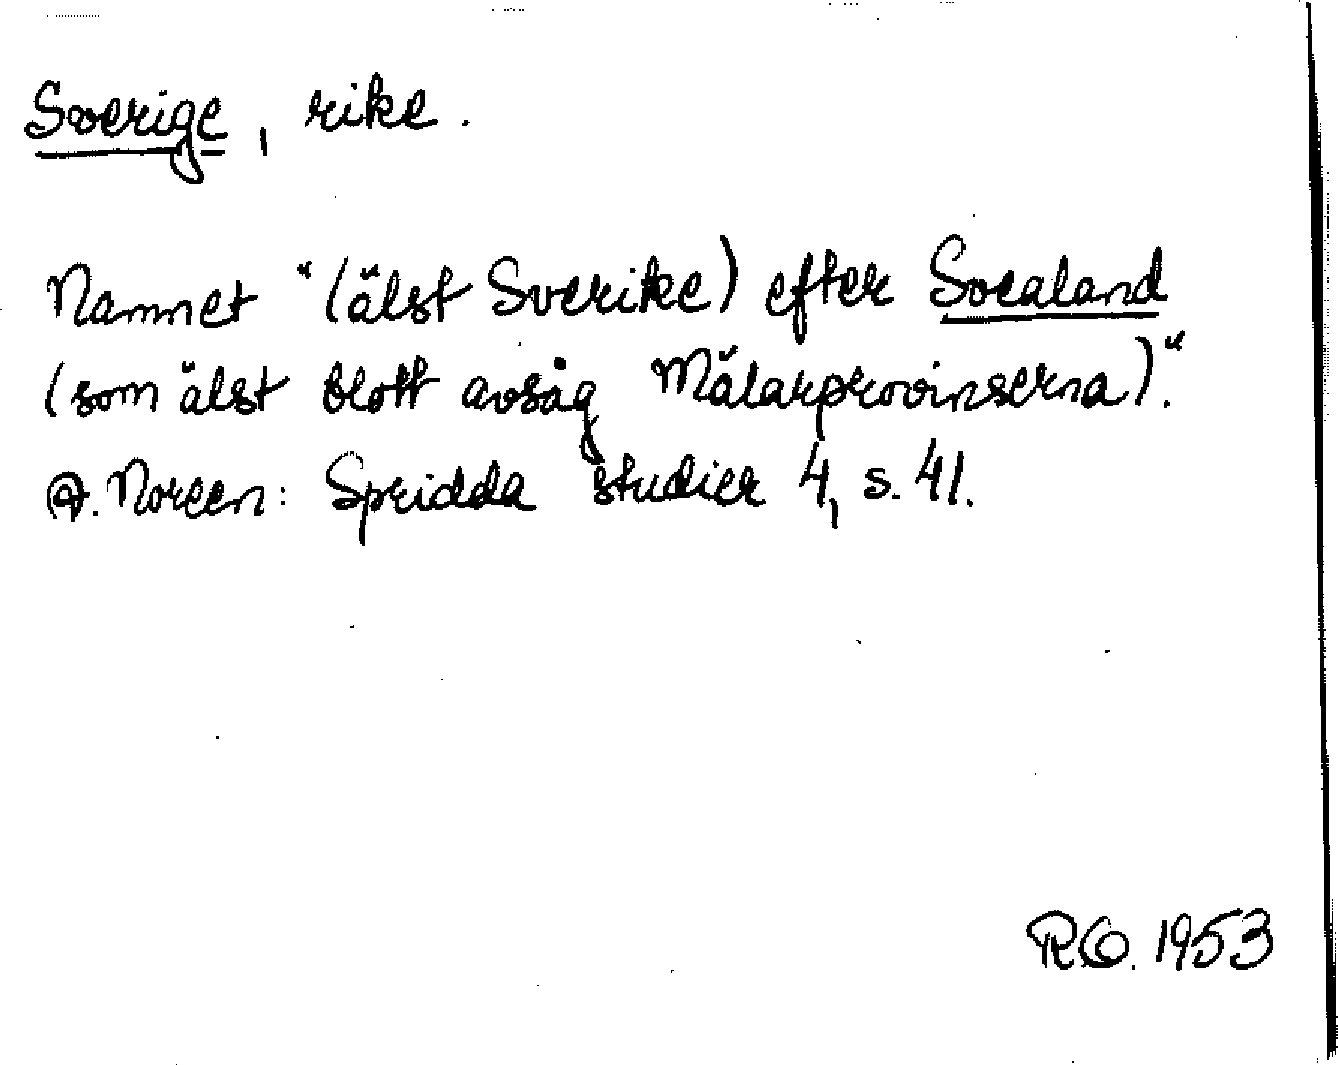 Sverige, rike.
Namnet "(älst Sverike) efter Svealand
(som älst blott avsåg Mälarprovinserna)".
A. Noreen: Spridda studier 4, s. 41.
1953